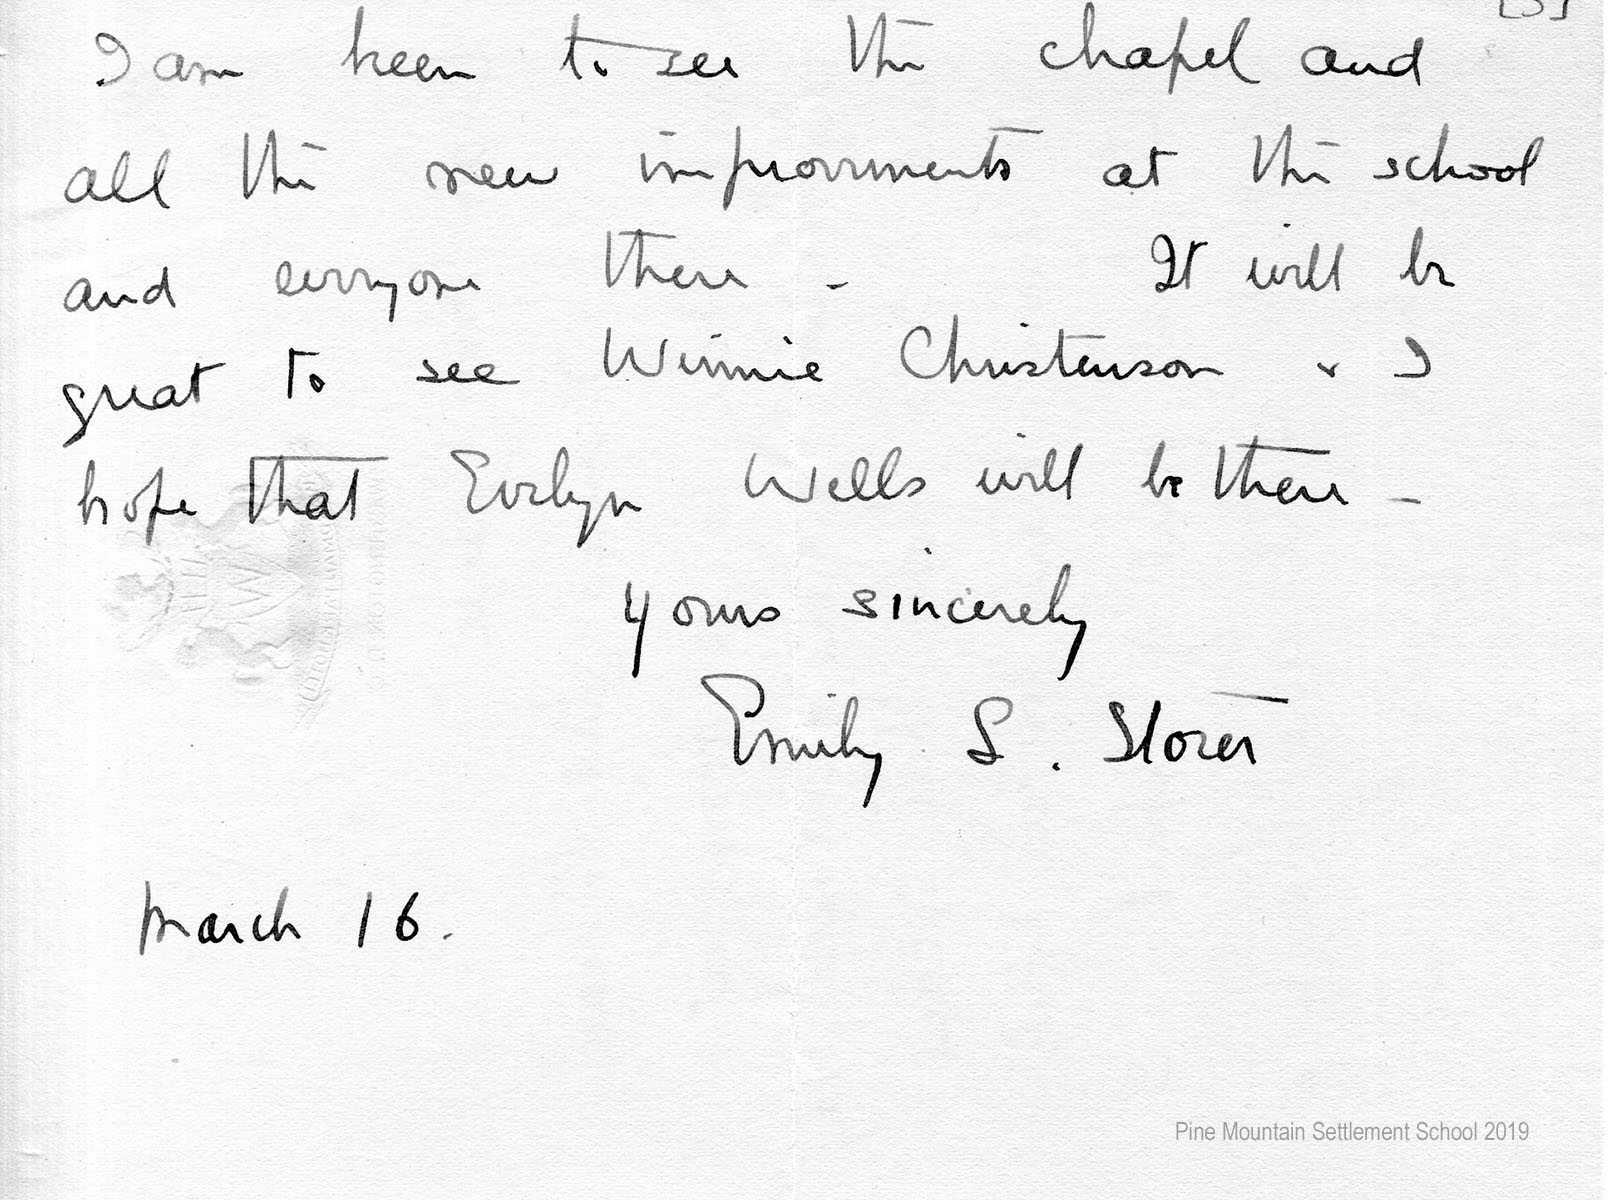 [3]
I am keen to see the chapel and
all the new improvements at the school
and everyone there - It will be
great to see Winnie Christenson & I
hope that Evelyn Wells will be there -
Yours sincerely
Emily S. Storer
March 16.
Pine Mountain Settlement School 2019